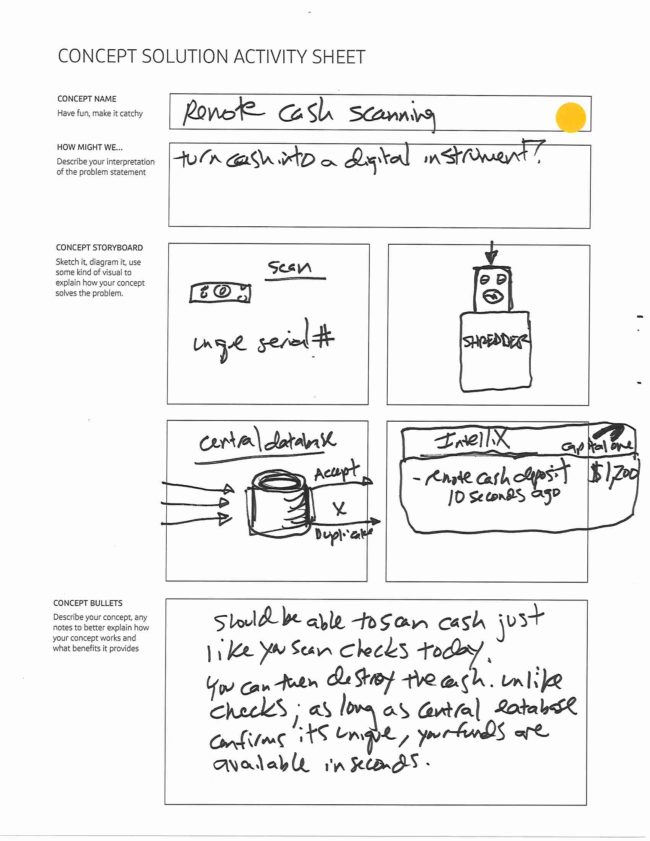 CONCEPT SOLUTION ACTIVITY SHEET
CONCEPT NAME
Have fun, make it catchy
Remote cash scanning
HOW MIGHT WE...
Describe your interpretation
of the problem statement
turn cash into a digital instrument?
CONCEPT STORYBOARD
Sketch it, diagram it, use
some kind of visual to
explain how your concept
solves the problem.
scan
unqe serial #
SHREDDER
central database
Accept
X
Duplicate
IntelliX
capital one
- remote cash deposit $1,200
10 seconds ago
CONCEPT BULLETS
Describe your concept, any
notes to better explain how
your concept works and
what benefits it provides
Should be able to scan cash just
like you scan checks today.
You can then destroy the cash. unlike
checks, as long as central database
confirms its unique, your funds are
available in seconds.